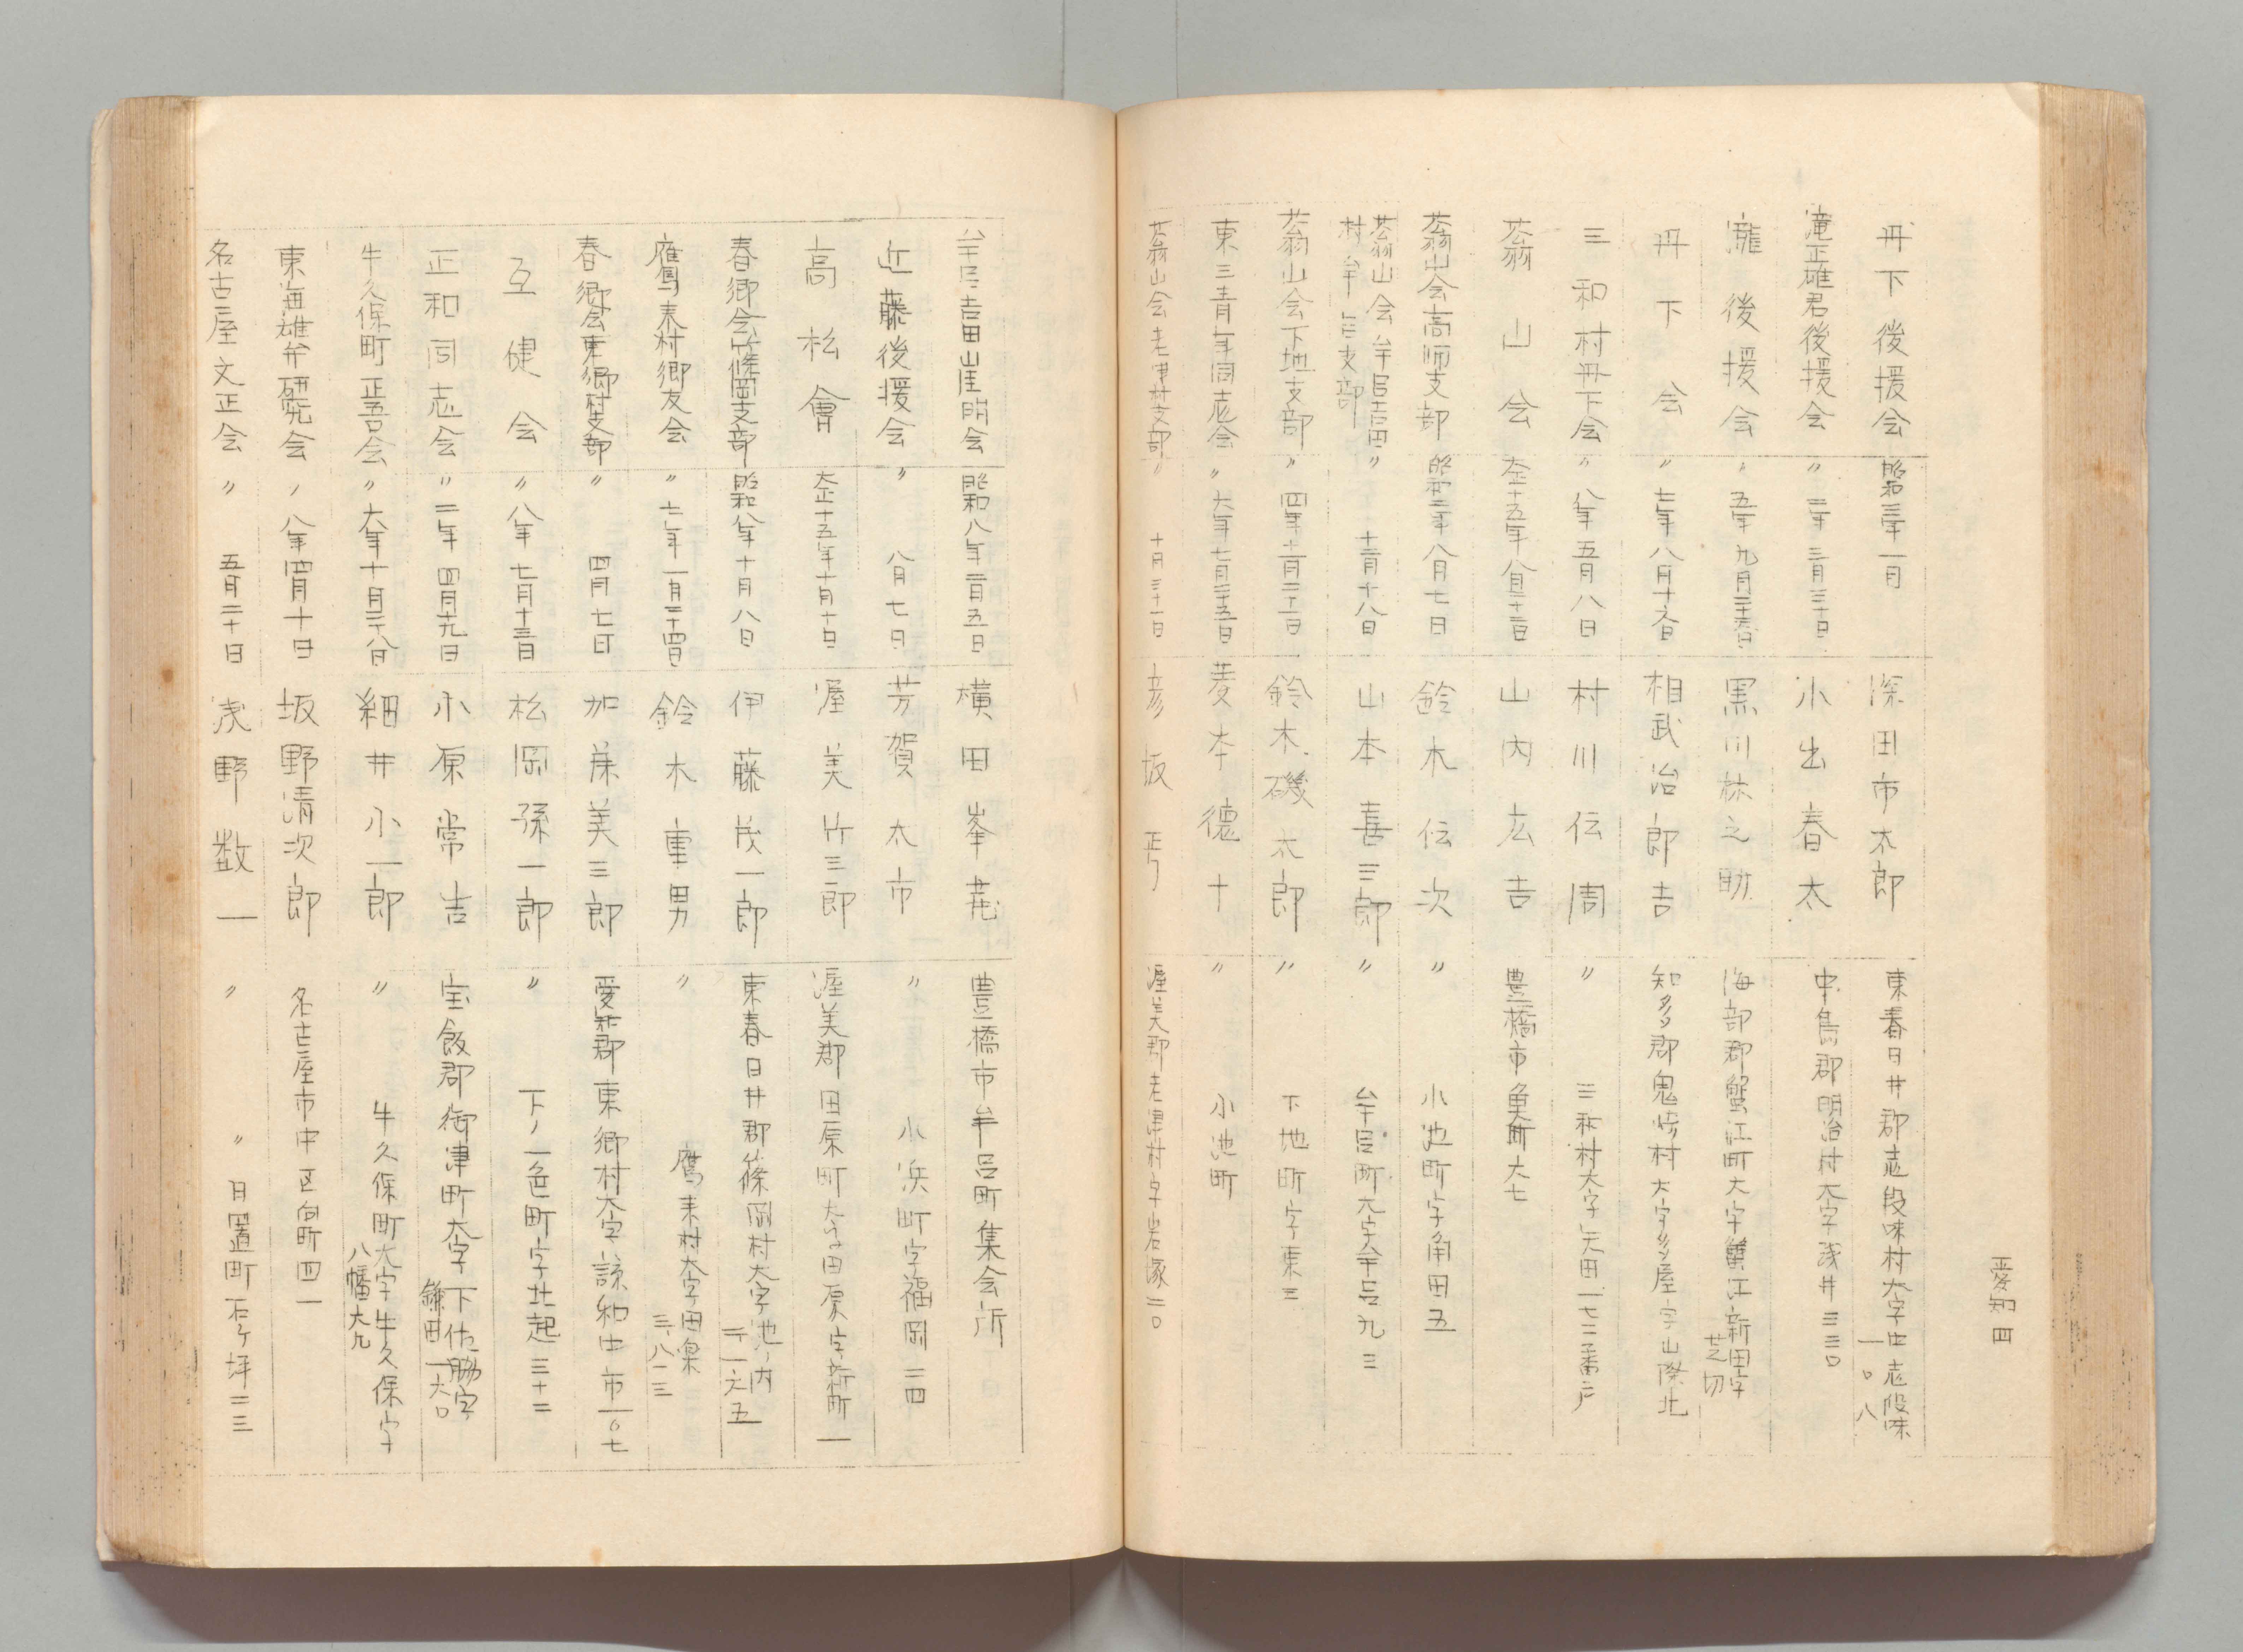 愛知 四
丹下後援会 昭和三年一月 深田市太郎 東春日井郡志段味村大字中志段味一〇八
滝正雄君後援会 〃二年三月三十日 小出春太 中島郡明治村大字浅井三三〇
瀧後援会 〃五年九月二十六日 黒川林之助 海部郡蟹江町大字蟹江新田字芝切
丹下会 〃七年八月十六日 相武治郎吉 知多郡鬼崎村大字多屋字山際北
三和村丹下会 〃八年五月八日 村川伝周 〃 三和村大字矢田一七二番戸
蓊山会 大正十五年八月二十二日 山内広吉 豊橋市魚町六七
蓊山会高師支部 昭和二年八月七日 鈴木伝次 〃 小池町字角田五
蓊山会牟呂吉田村牟呂支部 〃 十二月十八日 山本喜三郎 〃 牟呂町大字牟呂九三
蓊山会下地支部 〃四年十二月二十二日 鈴木磯太郎 〃 下地町字東三
東三青年同志会 〃六年七月二十五日 菱本徳十 〃 小池町
蓊山会老津村支部 〃 十月三十一日 彦坂 渥美郡老津村字岩塚二〇
牟呂吉田崖朋会 昭和八年二月五日 横田峯 豊橋市牟呂町集会所
近藤後援会 〃 八月七日 芳賀太市 〃 小浜町字福岡二四
高松會 大正十五年十月十日 渥美竹三郎 渥美郡田原町大字田原字新町一
春郷会篠岡支部 昭和八年十月八日 伊藤茂一郎 東春日井郡篠岡村大字池ノ内二一六五
鷹来村郷友会 〃七年一月二十四日 鈴木重男 〃 鷹来村大字田楽三八二三
春郷会東郷村支部 〃 四月七日 加藤美三郎 愛知郡東郷村大字諸和中市一〇七
互健会 〃八年七月十三日 松岡孫一郎 〃 下ノ一色町字北起三十二
正和同志会 〃二年四月十九日 小原常吉 宝飯郡御津町大字下佐脇字鎌田一六〇
牛久保町正吾会 〃六年十月二十八日 細井小一郎 〃 牛久保町大字牛久保字八幡六九
東海雄弁研究会 〃八年四月十日 坂野清次郎 名古屋市中区向町四一
名古屋文正会 〃 五月二十日 浅野数一 〃 〃 日置町石ヶ坪三三